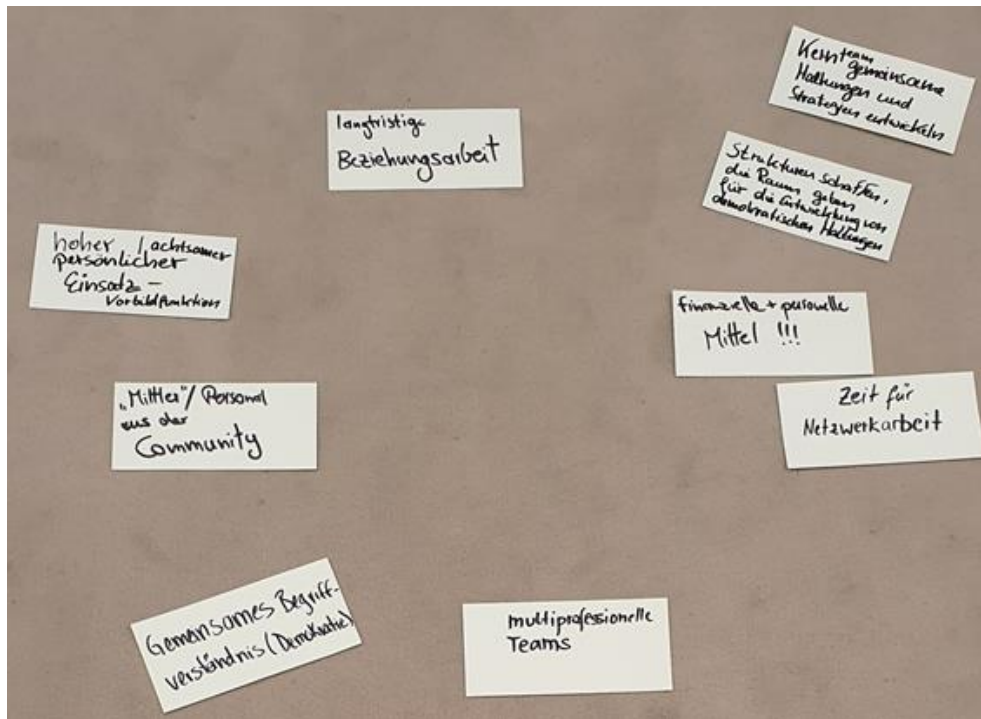 Kernteam
gemeinsame
Haltungen und
Strategien entwickeln
langfristige
Beziehungsarbeit
Strukturen schaffen,
die Raum geben
für die Entwicklung von
demokratischen Haltungen
hoher / achtsamer
persönlicher
Einsatz –
Vorbildfunktion
finanzielle + personelle
Mittel !!!
"Mittler"/ Personal
aus der
Community
Zeit für
Netzwerkarbeit
Gemensames Begriff-
verständnis (Demokratie)
multiprofessionelle
Teams